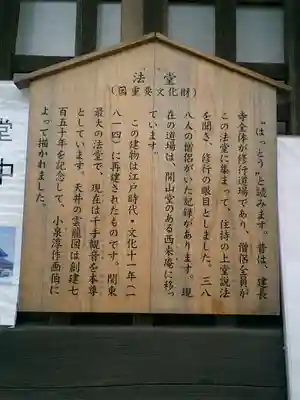 法堂
(国重要文化財)
“はっとう”と読みます。昔は、建長
寺全体が修行道場であり、僧侶全員が
この法堂に集まって、住持の上堂説法
を聞き、修行の眼目としました。三八
八人の僧侶がいた記録があります。現
在の道場は、開山堂のある西来庵に移っ
ています。
この建物は江戸時代・文化十一年(一
八一四)に再建されたものです。関東
最大の法堂で、現在は千手観音を本尊
としています。天井の雲龍図は創建七
百五十年を記念して、小泉淳作画伯に
よって描かれました。
堂
中